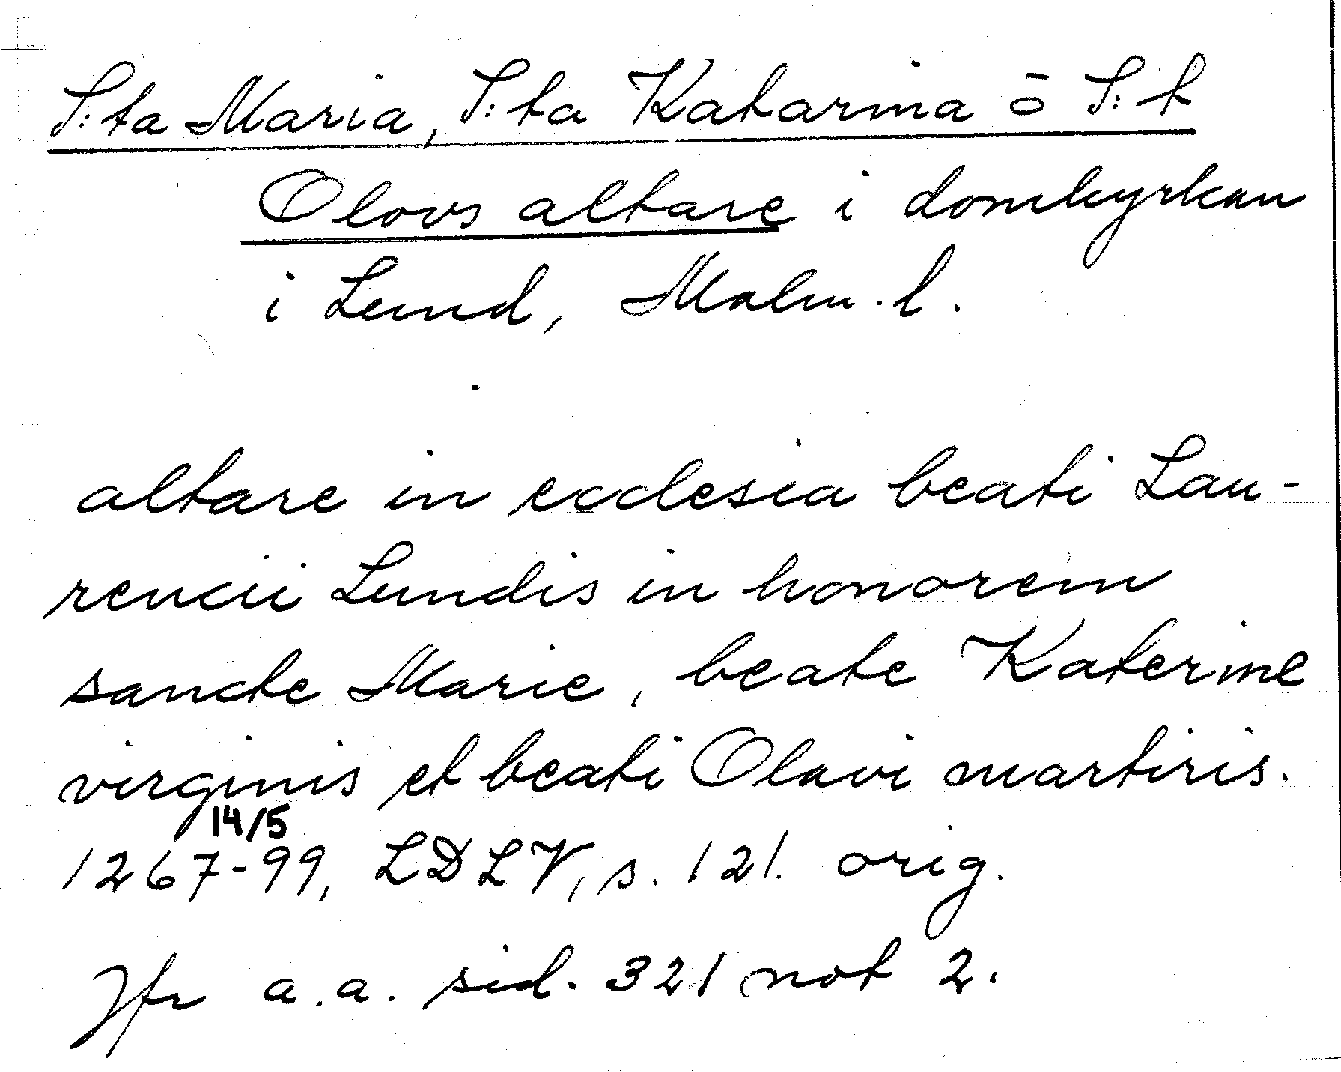 S:ta Maria, S:ta Katarina ō S:t
Olovs altare i domkyrkan
i Lund, Malm. l.
altare in ecclesia beati Lau-
rencii Lundis in honorem
sancte Marie, beate Katerine
virginis et beati Olavi martiris.
14/5
1267-99, LDLV, s. 121. orig.
Jfr a.a. sid. 321 not 2.